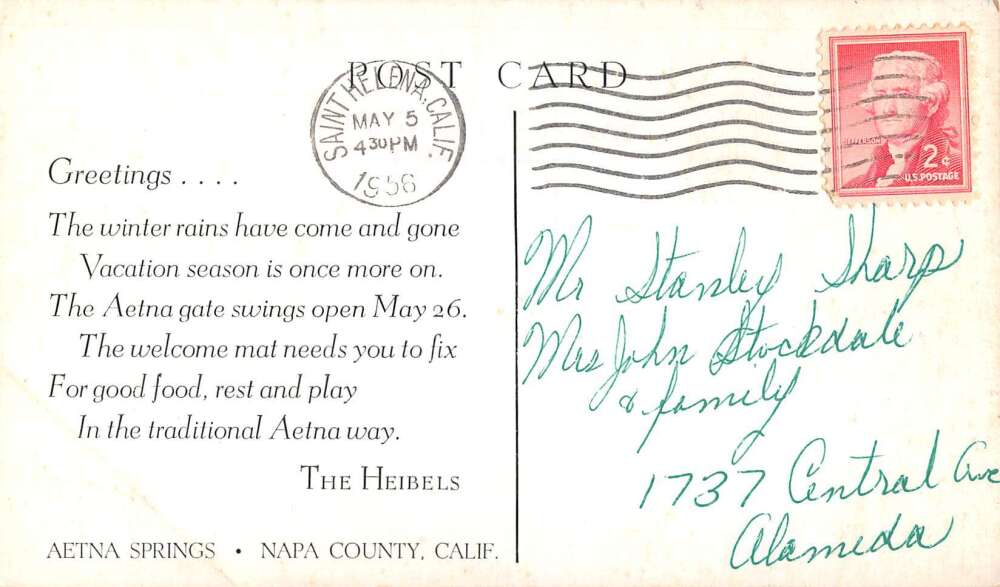 POST CARD
SAINT HELENA, CALIF.
MAY 5
4 30 PM
1956
JEFFERSON
2¢
U.S. POSTAGE
Greetings . . . .
The winter rains have come and gone
Vacation season is once more on.
The Aetna gate swings open May 26.
The welcome mat needs you to fix
For good food, rest and play
In the traditional Aetna way.
THE HEIBELS
AETNA SPRINGS • NAPA COUNTY, CALIF.
Mr Stanley Sharp
Mrs John Stockdale
& family
1737 Central Ave
Alameda